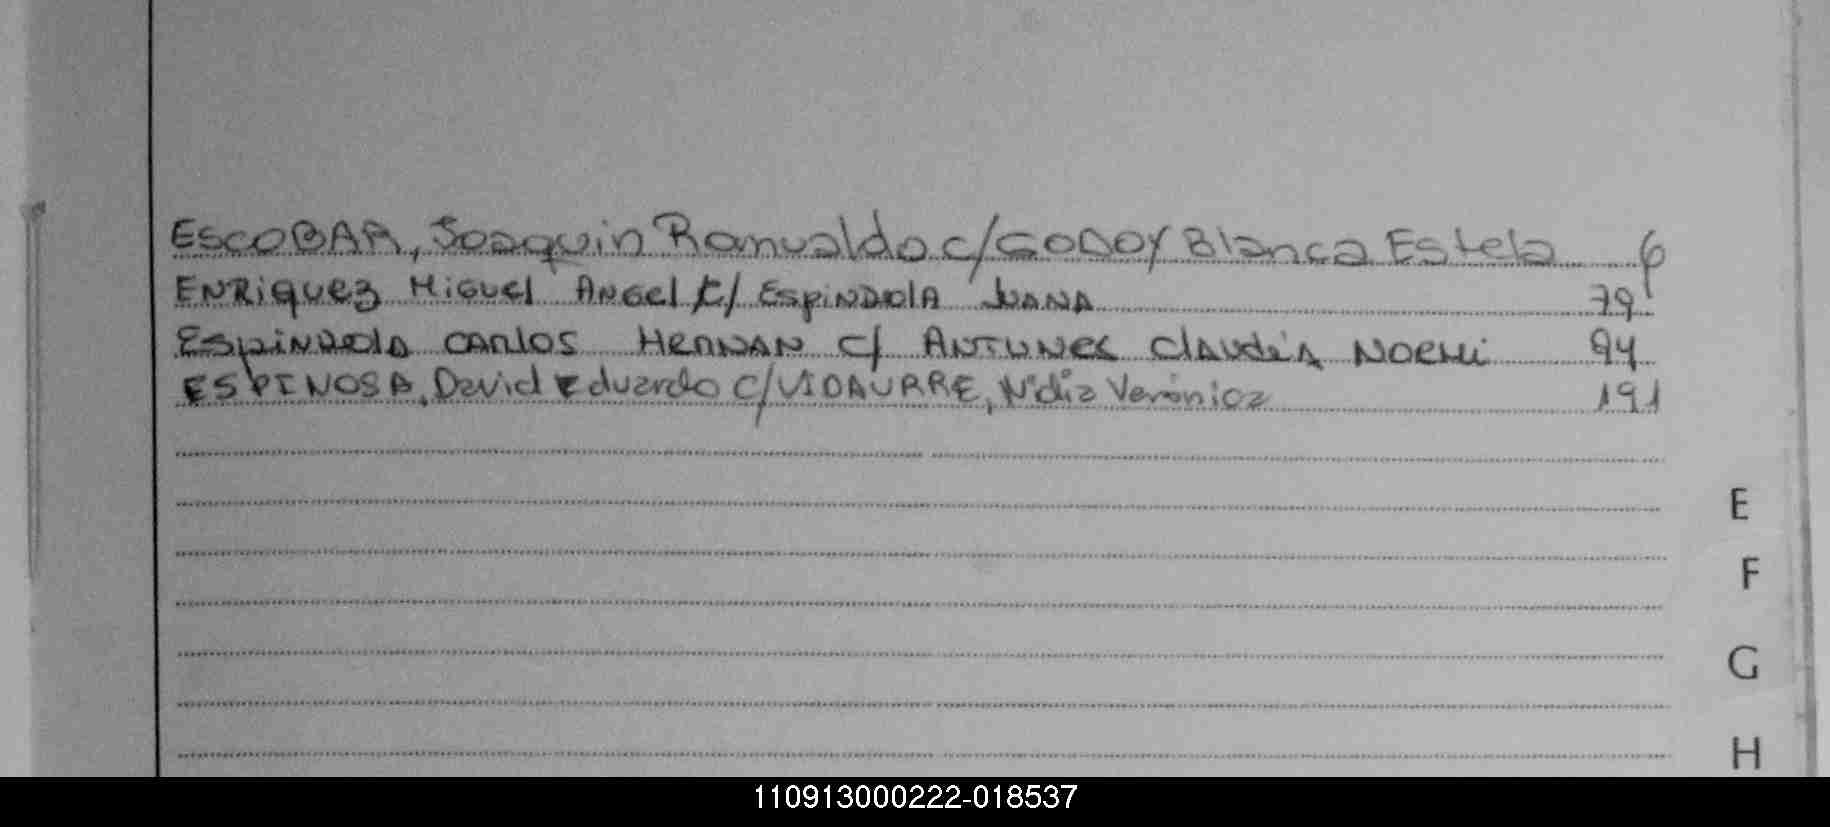 ESCOBAR, Joaquin Ramualdo c/ GODOY Blanca Estela 6
ENRiquez Miguel Angel c/ Espindola Juana 79
Espindola Carlos Hernan c/ Antunes Claudia Noemi 94
ESPINOSA, David Eduardo c/ VIDAURRE, Nidia Verónica 191
E
F
G
H
110913000222-018537